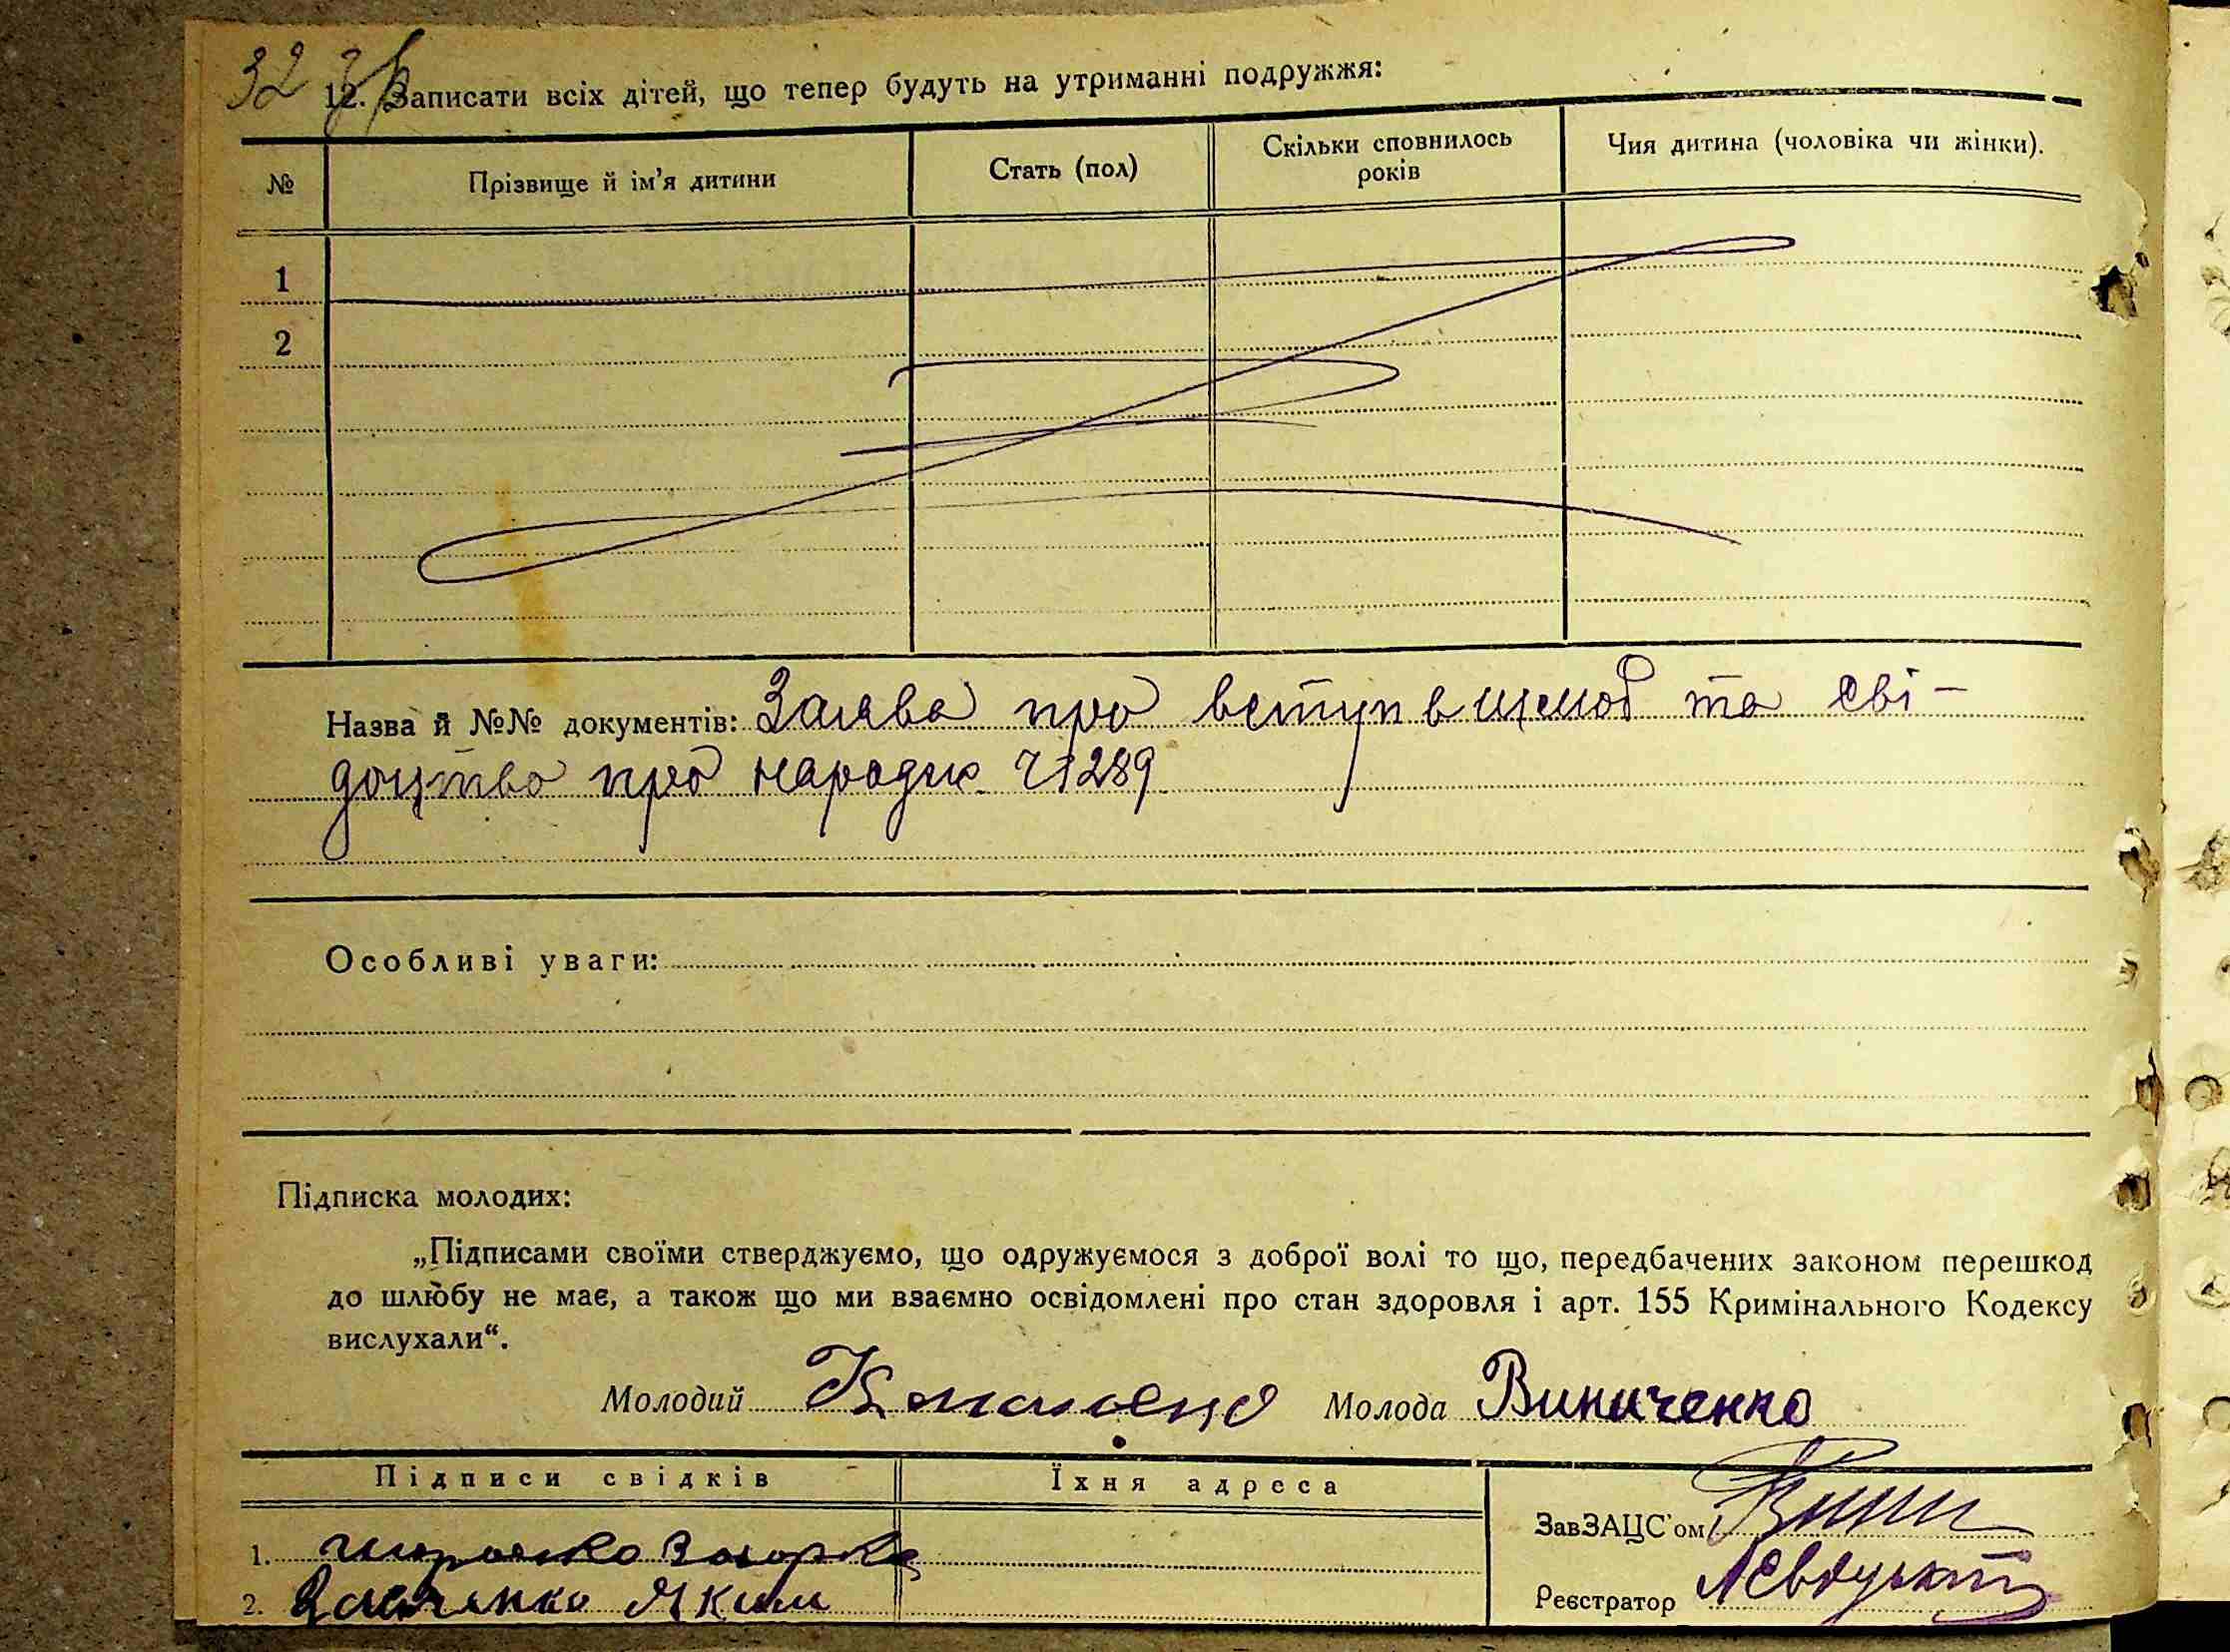 32 зв
12. Записати всіх дітей, що тепер будуть на утриманні подружжя:
№ Прізвище й ім'я дитини Стать (пол) Скільки сповнилось років Чия дитина (чоловіка чи жінки).
1
2
Назва й №№ документів: Заява про вступ в шлюб та сві-
доцтво про народж. 289
Особливі уваги:
Підписка молодих:
„Підписами своїми стверджуємо, що одружуємося з доброї волі то що, передбачених законом перешкод
до шлюбу не має, а також що ми взаємно освідомлені про стан здоровля і арт. 155 Кримінального Кодексу
вислухали“.
Молодий Молода Виниченко
Підписи свідків Їхня адреса
ЗавЗАЦС'ом
1.
Реєстратор
2. Яким